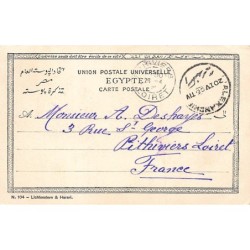 UNION POSTALE UNIVERSELLE
EGYPTE
CARTE POSTALE
مصر
LOIRET
ALEXANDRIE
A
Monsieur A. Deshayes
3 Rue St. George
Pithiviers Loiret
France
N. 104 - Lichtenstern & Harari.